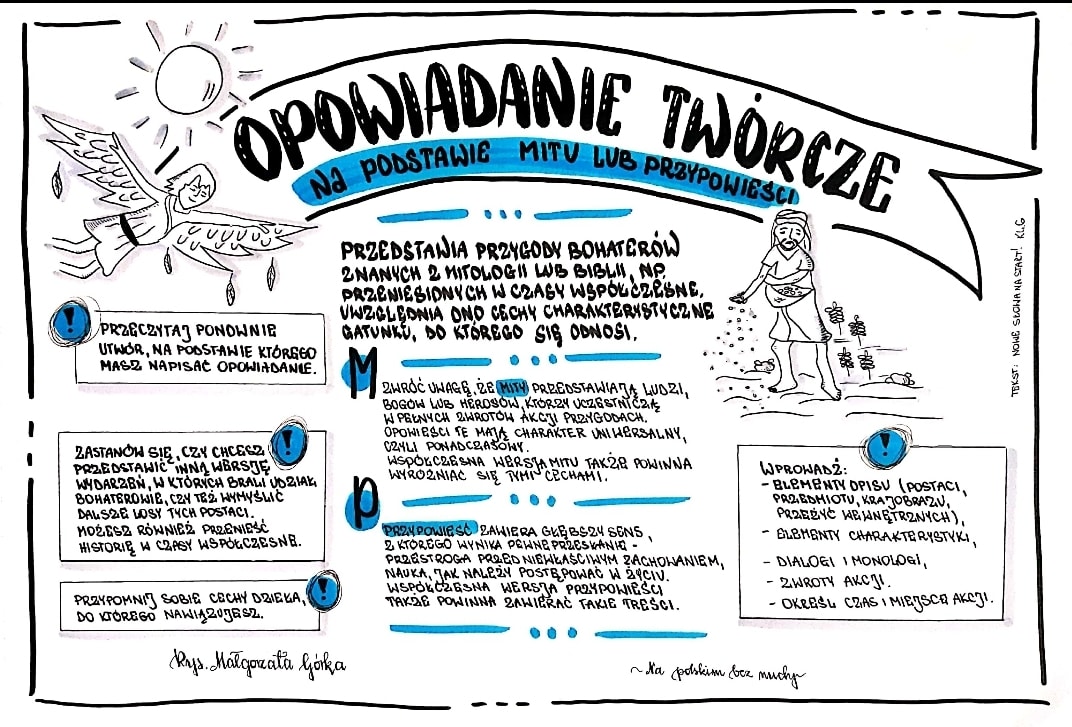 OPOWIADANIE TWÓRCZE
NA PODSTAWIE MITU LUB PRZYPOWIEŚCI
PRZEDSTAWIA PRZYGODY BOHATERÓW
ZNANYCH Z MITOLOGII LUB BIBLII, NP.
PRZENIESIONYCH W CZASY WSPÓŁCZEŚNE.
UWZGLĘDNIA ONO CECHY CHARAKTERYSTYCZNE
GATUNKU, DO KTÓREGO SIĘ ODNOSI.
! PRZECZYTAJ PONOWNIE
UTWÓR, NA PODSTAWIE KTÓREGO
MASZ NAPISAĆ OPOWIADANIE.
!
ZASTANÓW SIĘ, CZY CHCESZ
PRZEDSTAWIĆ INNĄ WERSJĘ
WYDARZEŃ, W KTÓRYCH BRALI UDZIAŁ
BOHATEROWIE, CZY TEŻ WYMYŚLIĆ
DALSZE LOSY TYCH POSTACI.
MOŻESZ RÓWNIEŻ PRZENIEŚĆ
HISTORIĘ W CZASY WSPÓŁCZESNE.
!
PRZYPOMNIJ SOBIE CECHY DZIEŁA,
DO KTÓREGO NAWIĄZUJESZ.
M
ZWRÓĆ UWAGĘ, ŻE MITY PRZEDSTAWIAJĄ LUDZI,
BOGÓW LUB HEROSÓW, KTÓRZY UCZESTNICZĄ
W PEŁNYCH ZWROTÓW AKCJI PRZYGODACH.
OPOWIEŚCI TE MAJĄ CHARAKTER UNIWERSALNY,
CZYLI PONADCZASOWY.
WSPÓŁCZESNA WERSJA MITU TAKŻE POWINNA
WYRÓŻNIAĆ SIĘ TYMI CECHAMI.
P
PRZYPOWIEŚĆ ZAWIERA GŁĘBSZY SENS,
Z KTÓREGO WYNIKA PEWNE PRZESŁANIE -
PRZESTROGA PRZED NIEWŁAŚCIWYM ZACHOWANIEM,
NAUKA, JAK NALEŻY POSTĘPOWAĆ W ŻYCIU.
WSPÓŁCZESNA WERSJA PRZYPOWIEŚCI
TAKŻE POWINNA ZAWIERAĆ TAKIE TREŚCI.
!
WPROWADŹ:
- ELEMENTY OPISU (POSTACI,
PRZEDMIOTU, KRAJOBRAZU,
PRZEŻYĆ WEWNĘTRZNYCH),
- ELEMENTY CHARAKTERYSTYKI,
- DIALOGI I MONOLOGI,
- ZWROTY AKCJI.
- OKREŚL CZAS I MIEJSCE AKCJI.
TEKST: NOWE SŁOWA NA START! KL.6
Rys. Małgorzata Górka
~ Na polskim bez nudy ~